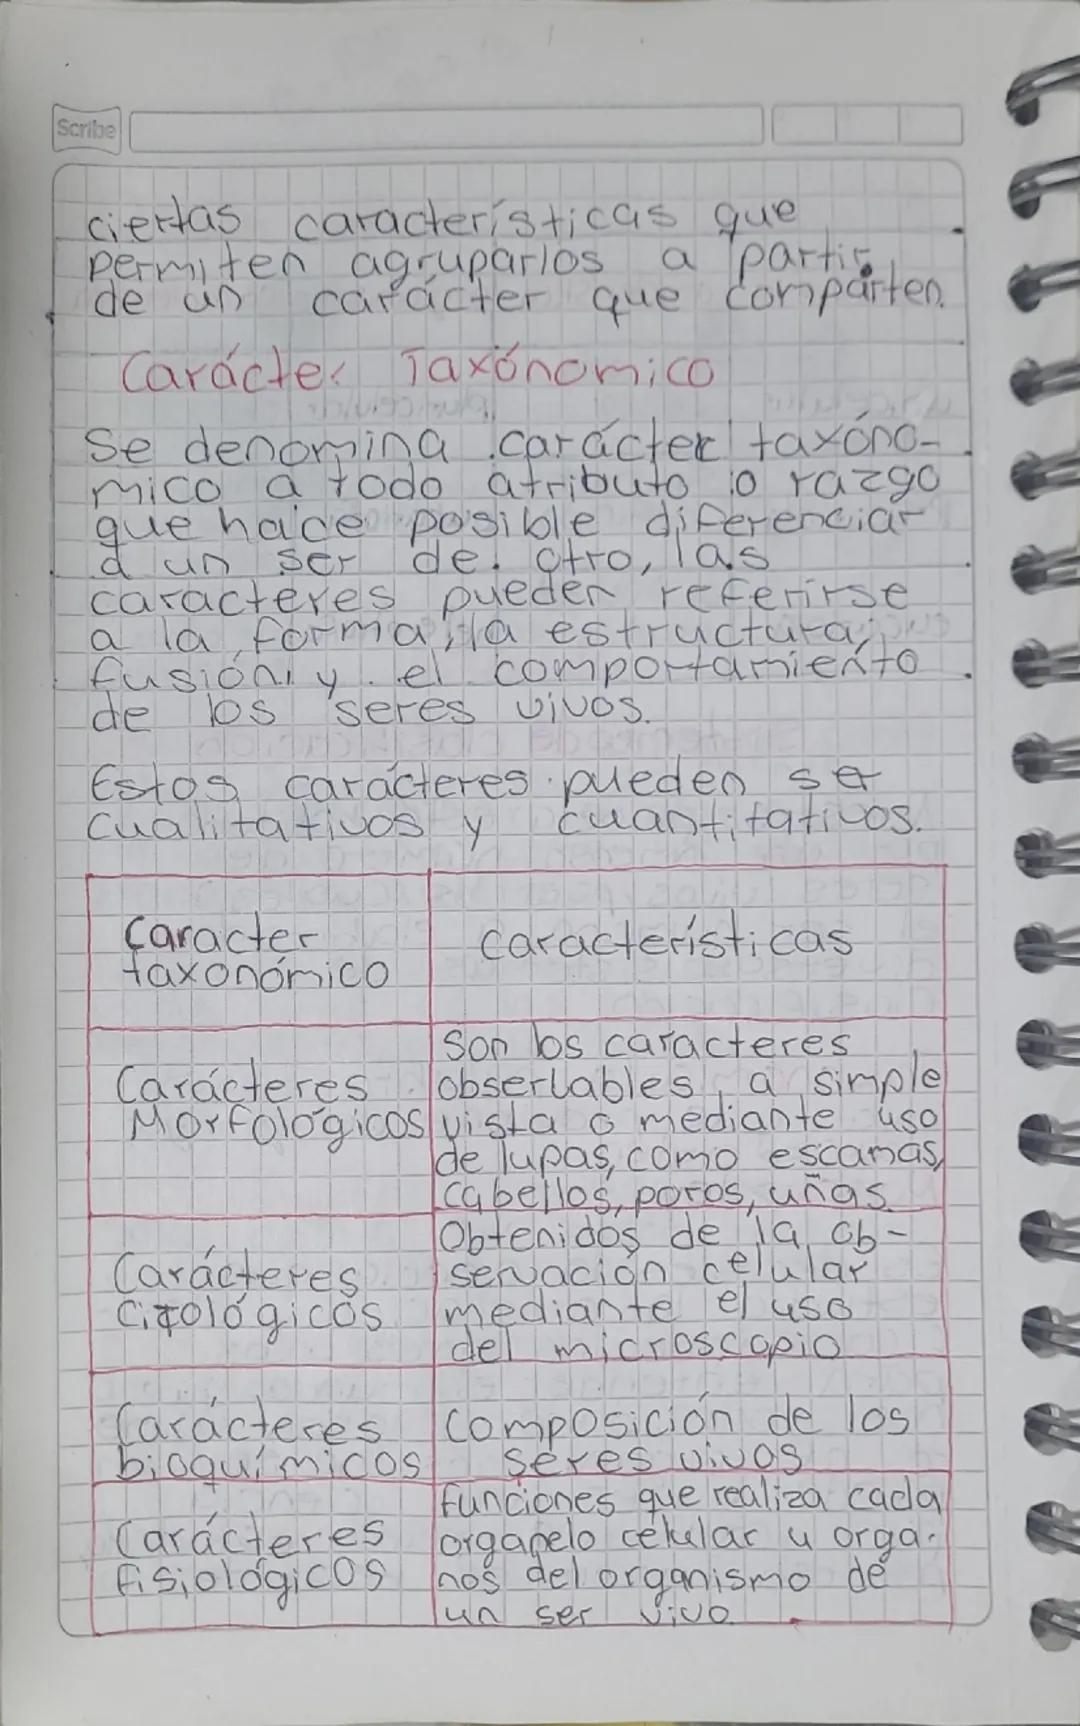 Scribe
ciertas características que
permiten agruparlos a partir
de un carácter que comparten.
Carácter Taxónomico
Se denomina carácter taxóno-
mico a todo atributo o razgo
que hace posible diferenciar
a un ser de otro, las
caracteres pueden referirse
a la forma, la estructura,
fusión, y el comportamiento
de los seres vivos.
Estos carácteres pueden ser
cualitativos y cuantitativos.
Caracter
taxonómico
características
Carácteres
Morfológicos
Son los caracteres
obserlables a simple
vista o mediante uso
de lupas, como escamas,
cabellos, poros, uñas.
Carácteres
Citológicos
Obtenidos de la ob-
servación celular
mediante el uso
del microscopio
Carácteres
bioquímicos
composición de los
seres vivos
Carácteres
fisiológicos
funciones que realiza cada
organelo celular y orga-
nos del organismo de
un ser vivo.